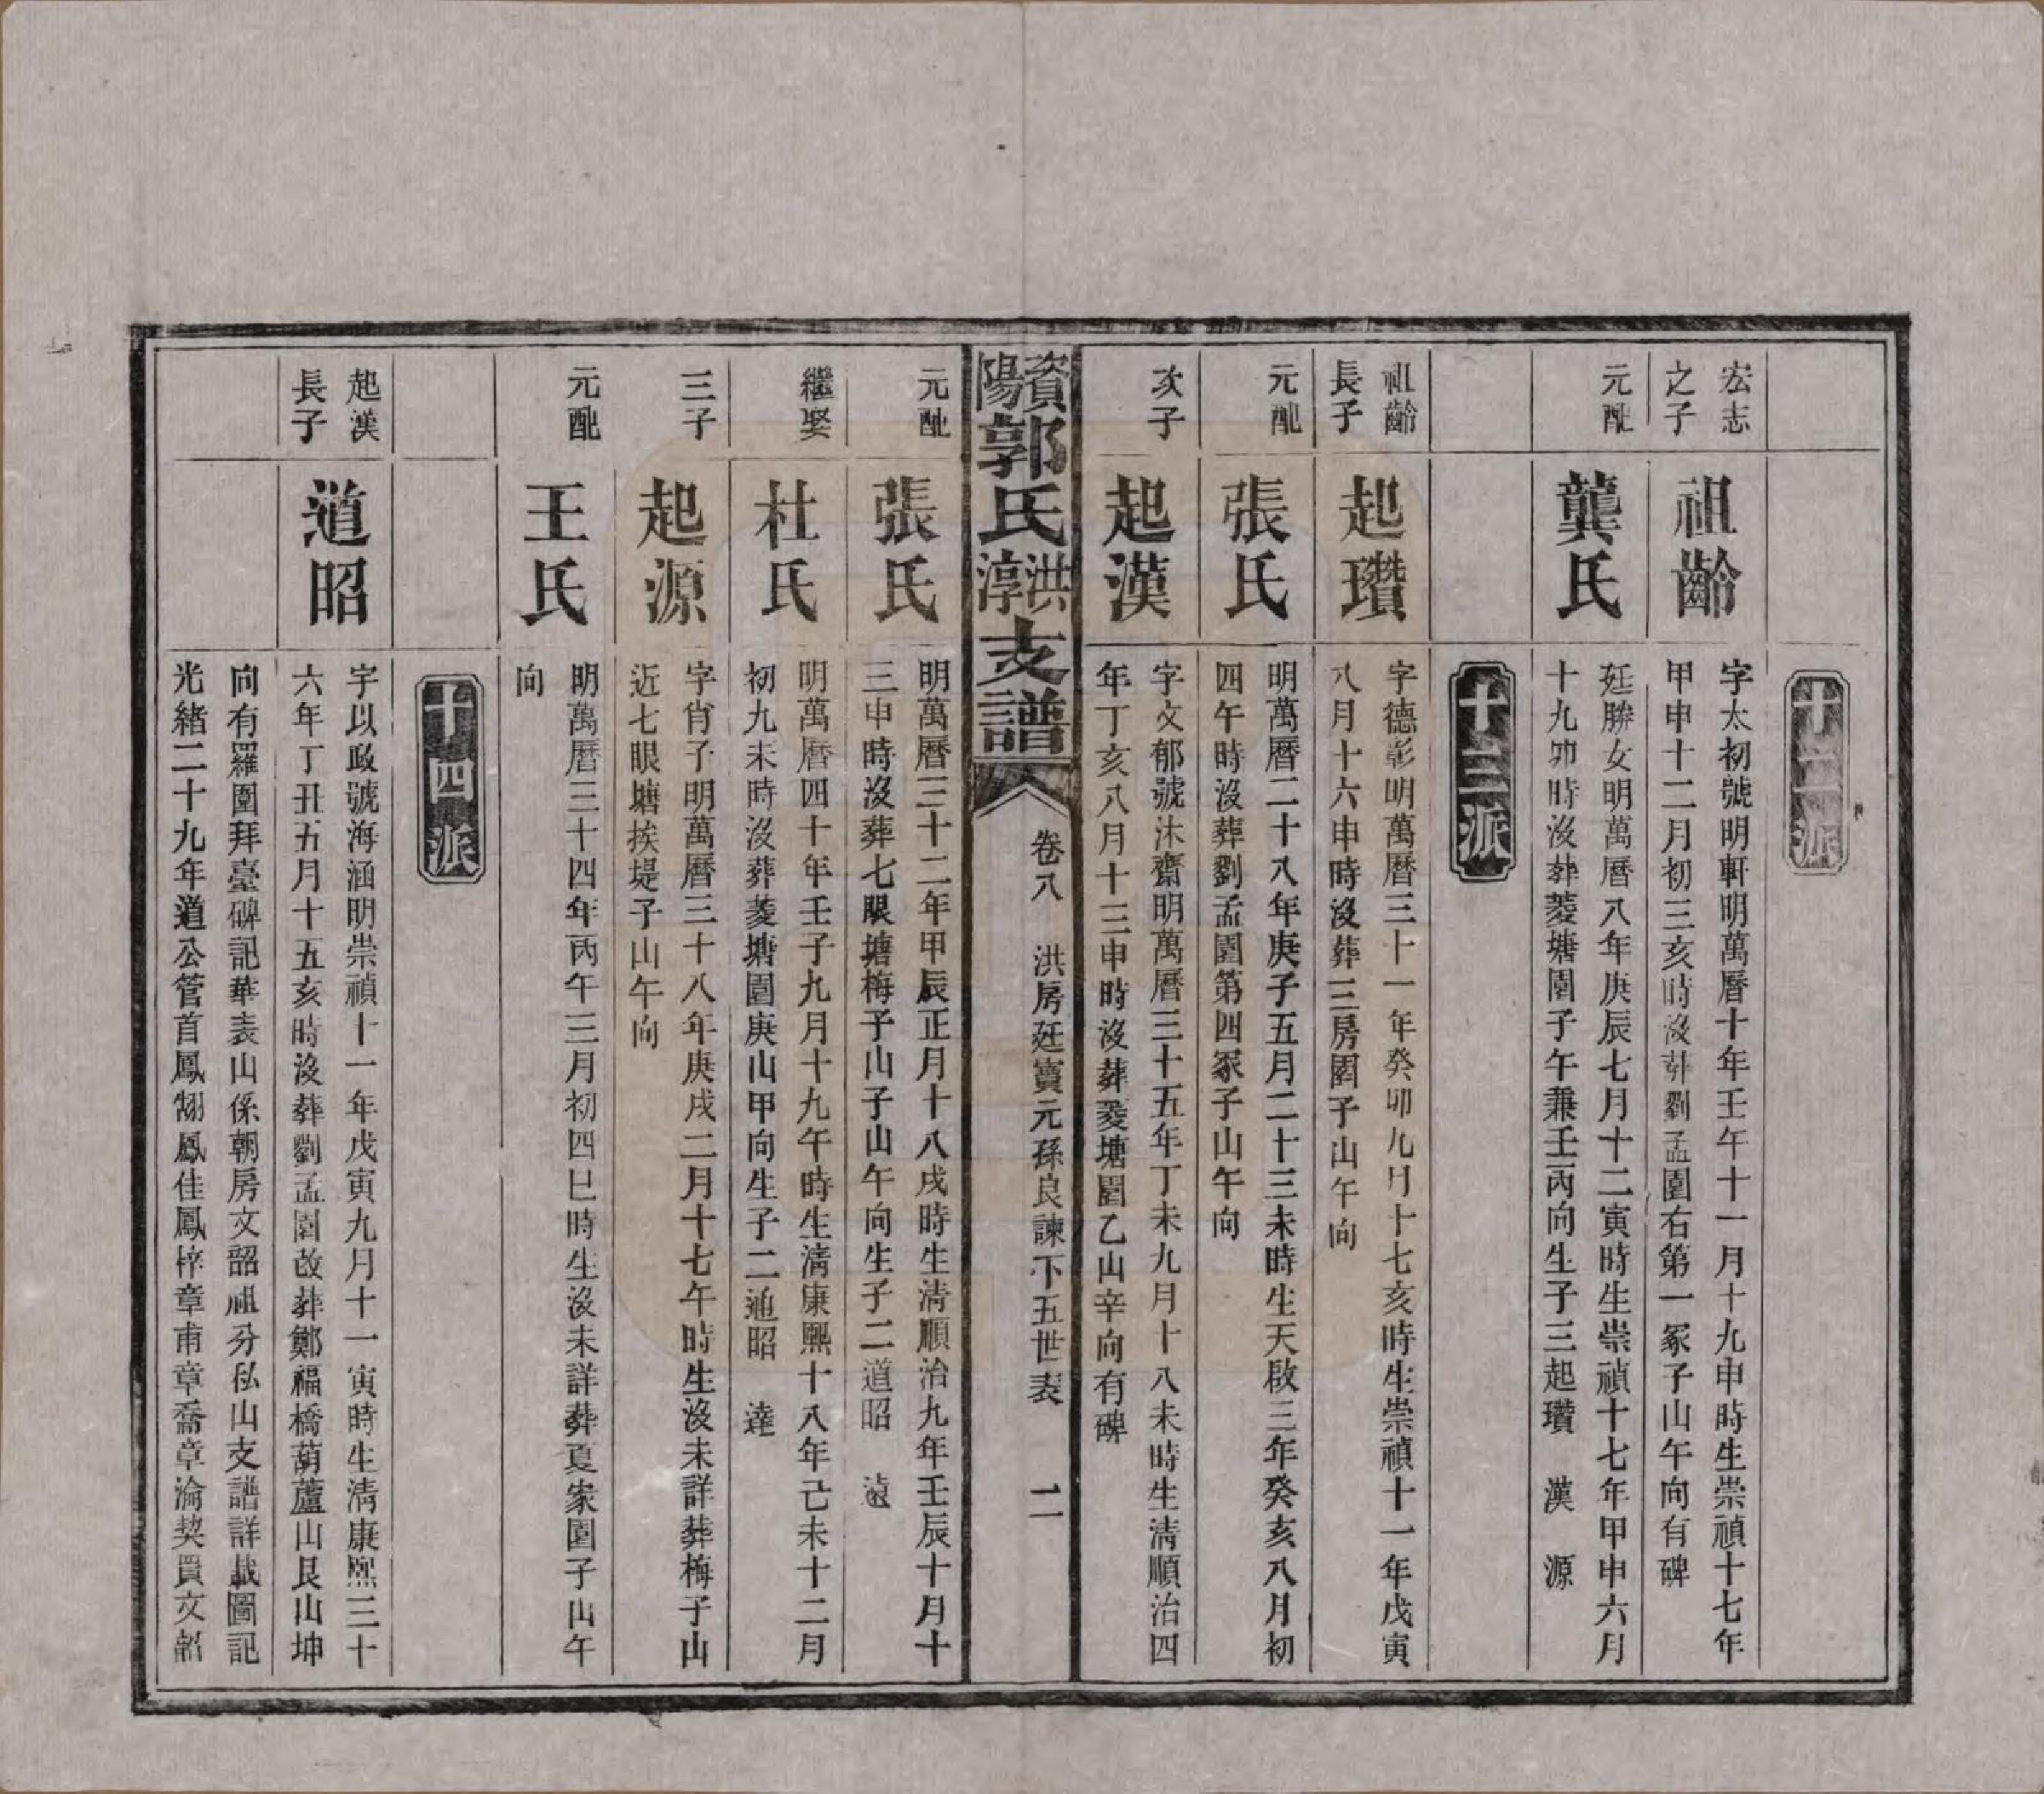 十二派
宏志
之子
祖齡
字太初號明軒明萬曆十年壬午十一月十九申時生崇禎十七年
甲申十二月初三亥時沒葬劉孟園右第一冢子山午向有碑
元配
龔氏
廷勝女明萬曆八年庚辰七月十二寅時生崇禎十七年甲申六月
十九卯時沒葬菱塘園子午兼壬丙向生子三起瓚 漢 源
十三派
祖齡
長子
起瓚
字德彰明萬曆三十一年癸卯九月十七亥時生崇禎十一年戊寅
八月十六申時沒葬三房園子山午向
元配
張氏
明萬曆二十八年庚子五月二十三未時生天啟三年癸亥八月初
四午時沒葬劉孟園第四冢子山午向
次子
起漢
字文郁號沐齋明萬曆三十五年丁未九月十八未時生清順治四
年丁亥八月十三申時沒葬菱塘園乙山辛向有碑
資陽郭氏洪淳支譜
卷八 洪房廷寶元孫良諫下五世表 二
元配
張氏
明萬曆三十二年甲辰正月十八戌時生清順治九年壬辰十月十
三申時沒葬七眼塘梅子山子山午向生子二道昭 遠
繼娶
杜氏
明萬曆四十年壬子九月十九午時生清康熙十八年己未十二月
初九未時沒葬菱塘園庚山甲向生子二道昭 達
三子
起源
字肖子明萬曆三十八年庚戌二月十七午時生沒未詳葬梅子山
近七眼塘挨堤子山午向
元配
王氏
明萬曆三十四年丙午三月初四巳時生沒未詳葬夏家園子山午
向
十四派
起漢
長子
道昭
字以政號海涵明崇禎十一年戊寅九月十一寅時生清康熙三十
六年丁丑五月十五亥時沒葬劉孟園改葬鄭福橋葫蘆山艮山坤
向有羅圍拜臺碑記華表山係朝房文韶祖分私山支譜詳載圖記
光緒二十九年道公管首鳳翎鳳佳鳳梓章甫章喬章淪契買文韶